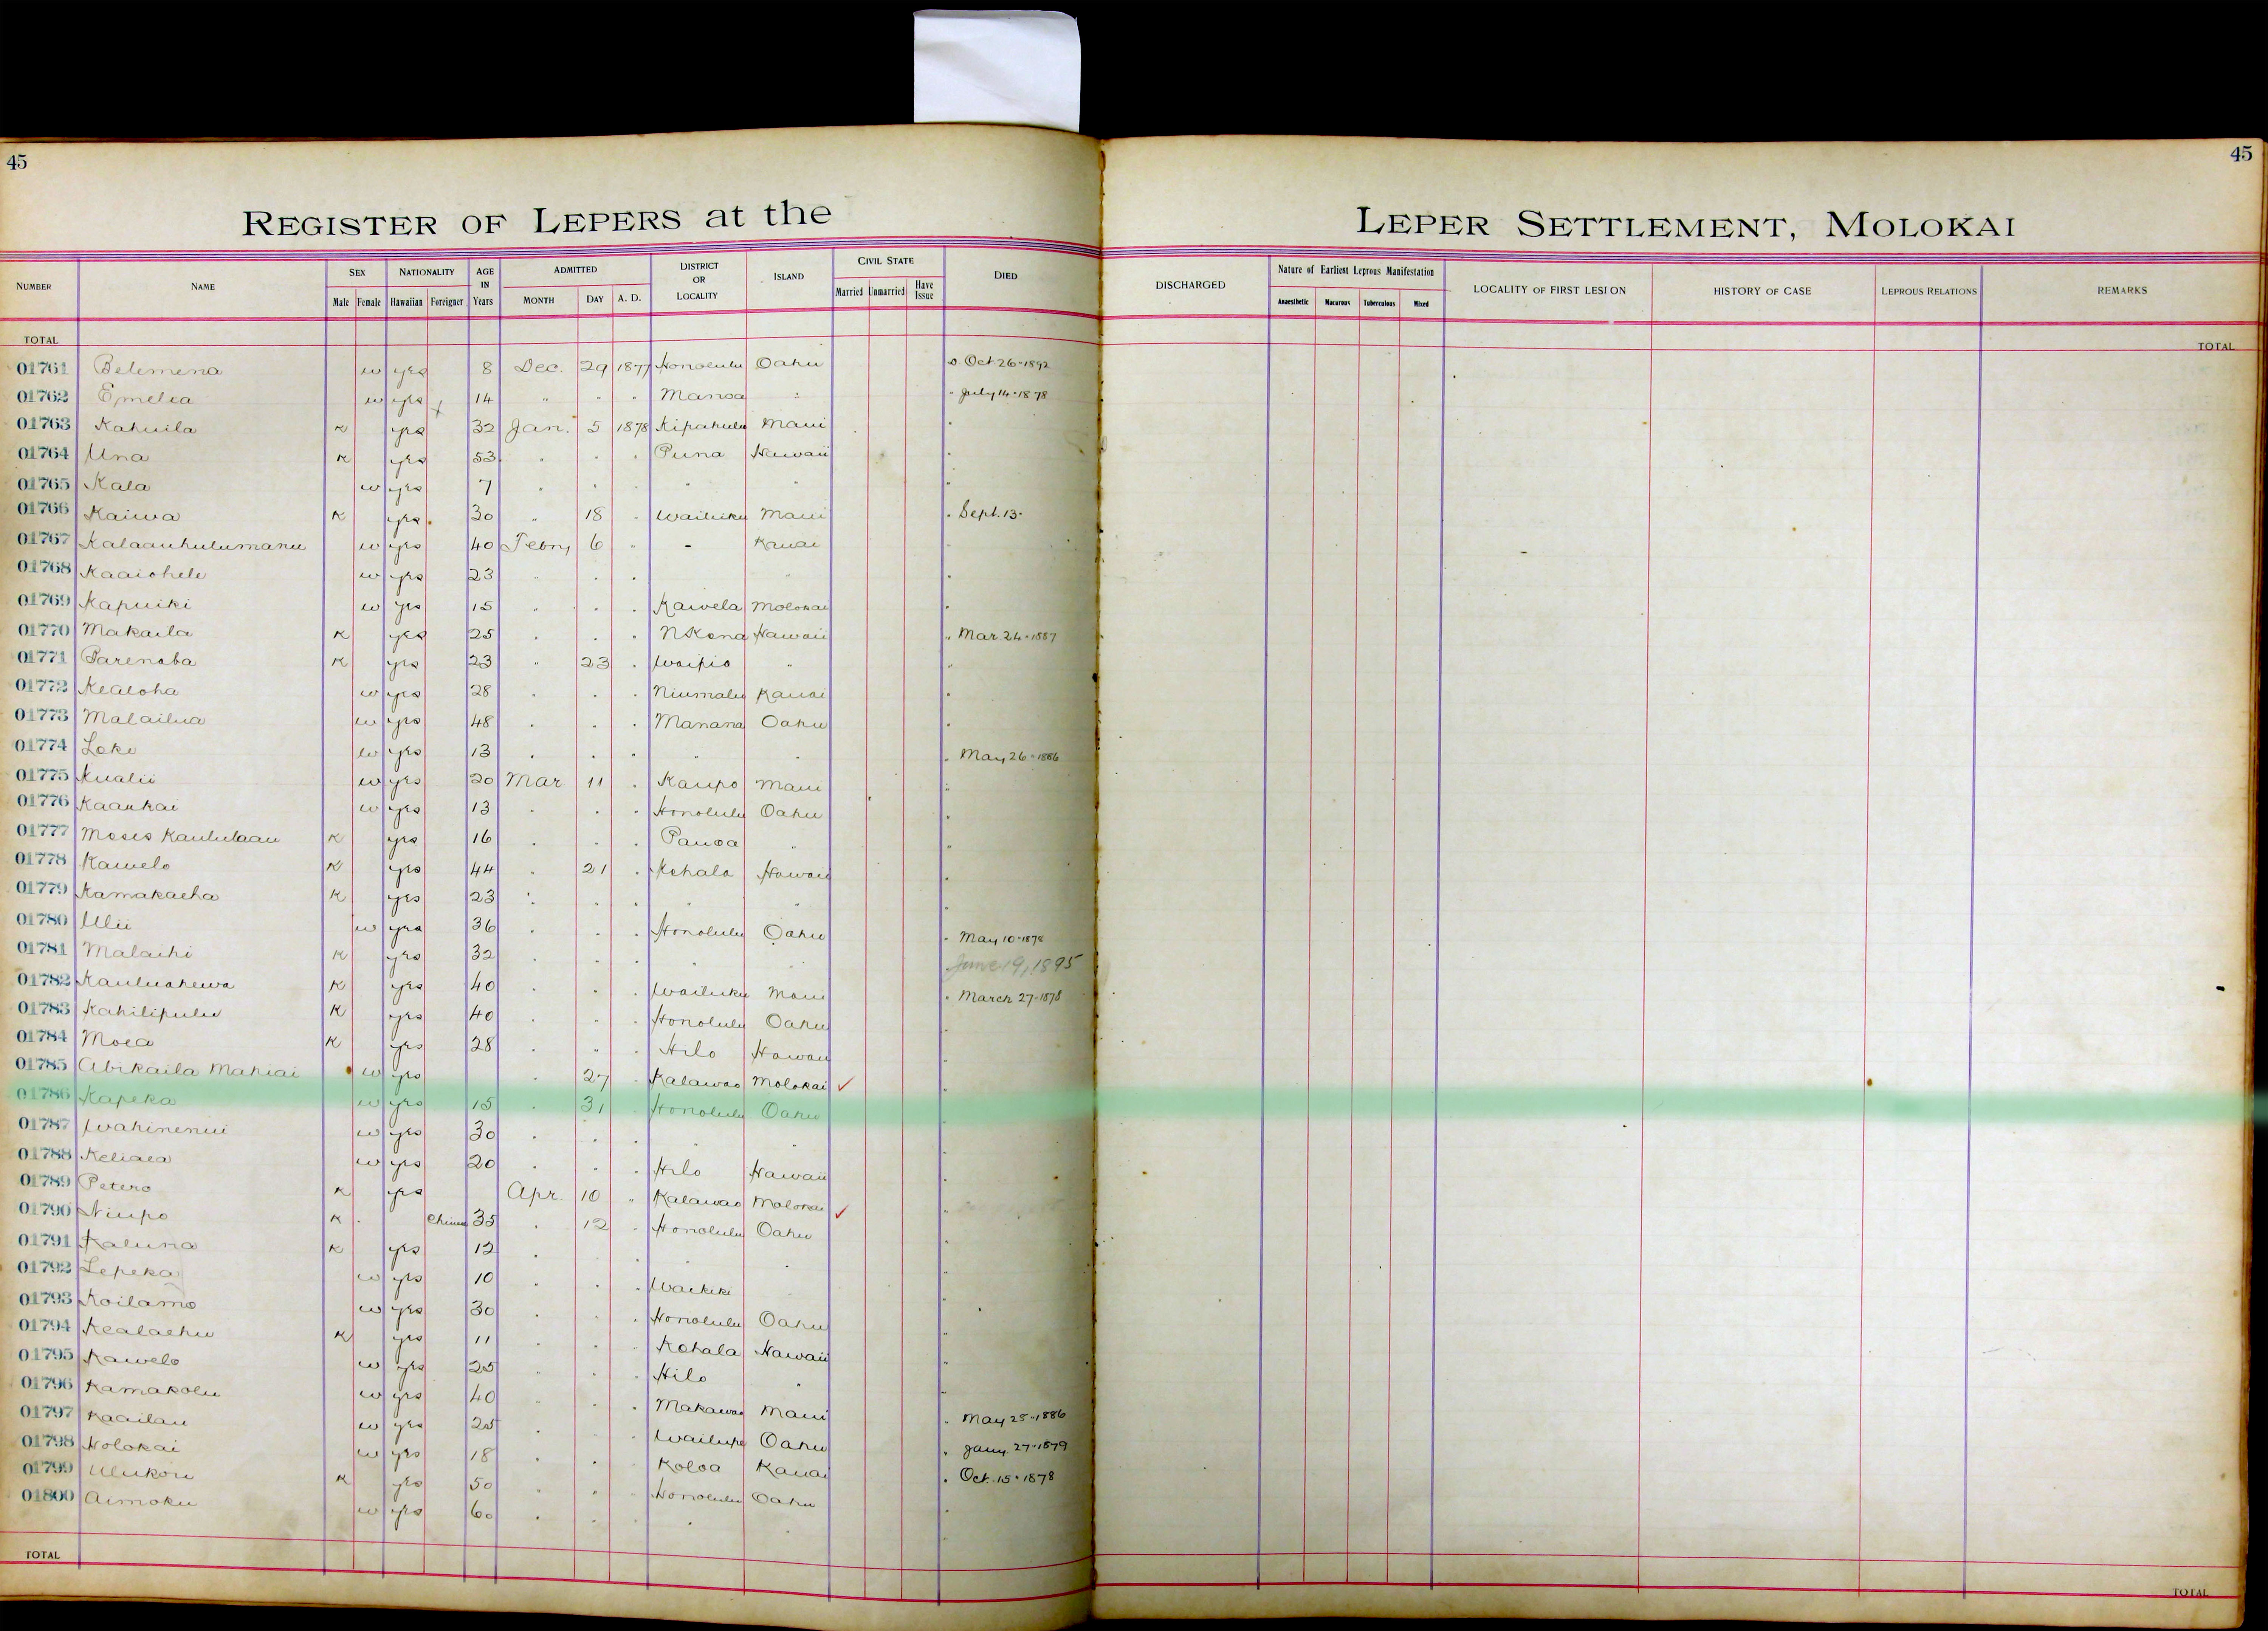 45
45
REGISTER OF LEPERS at the LEPER SETTLEMENT, MOLOKAI
NUMBER NAME SEX NATIONALITY AGE IN Years ADMITTED DISTRICT OR LOCALITY ISLAND CIVIL STATE DIED DISCHARGED Nature of Earliest Leprous Manifestation LOCALITY OF FIRST LESION HISTORY OF CASE LEPROUS RELATIONS REMARKS
Male Female Hawaiian Foreigner MONTH DAY A. D. Married Unmarried Have Issue Anaesthetic Macurous Tuberculous Mixed
TOTAL TOTAL
01761 Belemena w yes 8 Dec. 29 1877 Honolulu Oahu Oct 26-1892
01762 Emelia w yes 14 " " " Manoa " " July 14-1878
01763 Kahuila K yes 32 Jan. 5 1878 Kipahulu Maui "
01764 Una K yes 53 " " " Puna Hawaii "
01765 Kala w yes 7 " " " " " "
01766 Kaiwa K yes 30 " 18 " Wailuku Maui " Sept. 13-
01767 Kalaauhulumanu w yes 40 Febry 6 " - Kauai "
01768 Kaaiohele w yes 23 " " " " "
01769 Kapuiki w yes 15 " " " Kawela Molokai "
01770 Makaila K yes 25 " " " N Kona Hawaii " Mar. 24-1887
01771 Parenaba K yes 23 " 23 " Waipio " "
01772 Kealoha w yes 28 " " " Niumalu Kauai "
01773 Malailua w yes 48 " " " Manana Oahu "
01774 Loke w yes 13 " " " " " " May 26-1886
01775 Kualii w yes 20 Mar 11 " Kaupo Maui "
01776 Kaaukai w yes 13 " " " Honolulu Oahu "
01777 Moses Kaululaau K yes 16 " " " Pauoa " "
01778 Kawelo K yes 44 " 21 " Kohala Hawaii "
01779 Kamakaeha K yes 23 " " " " " "
01780 Ulii w yes 36 " " " Honolulu Oahu " May 10-1878
01781 Malaihi K yes 32 " " " " " June 19, 1895
01782 Kauluahewa K yes 40 " " " Wailuku Maui " March 27-1878
01783 Kahilipulu K yes 40 " " " Honolulu Oahu "
01784 Moea K yes 28 " " " Hilo Hawaii "
01785 Abikaila Mahiai w yes " 27 " Kalawao Molokai ✓ "
01786 Kapeka w yes 15 " 31 " Honolulu Oahu "
01787 Wahinenui w yes 30 " " " " " "
01788 Keliaea w yes 20 " " " Hilo Hawaii "
01789 Petero K yes Apr. 10 " Kalawao Molokai ✓ "
01790 Niupo K Chinese 35 " 12 " Honolulu Oahu "
01791 Kaluna K yes 12 " " " " " "
01792 Lepeka w yes 10 " " " Waikiki " "
01793 Koilamo w yes 30 " " " Honolulu Oahu "
01794 Kealaehu K yes 11 " " " Kohala Hawaii "
01795 Kawelo w yes 25 " " " Hilo " "
01796 Kamakolu w yes 40 " " " Makawao Maui "
01797 Kaailau w yes 25 " " " Wailupe Oahu " May 25-1886
01798 Holokai w yes 18 " " " Koloa Kauai " Jany. 27-1879
01799 Ulukou K yes 50 " " " Honolulu Oahu " Oct. 15-1878
01800 Aimoku w yes 60 " " " " " "
TOTAL TOTAL